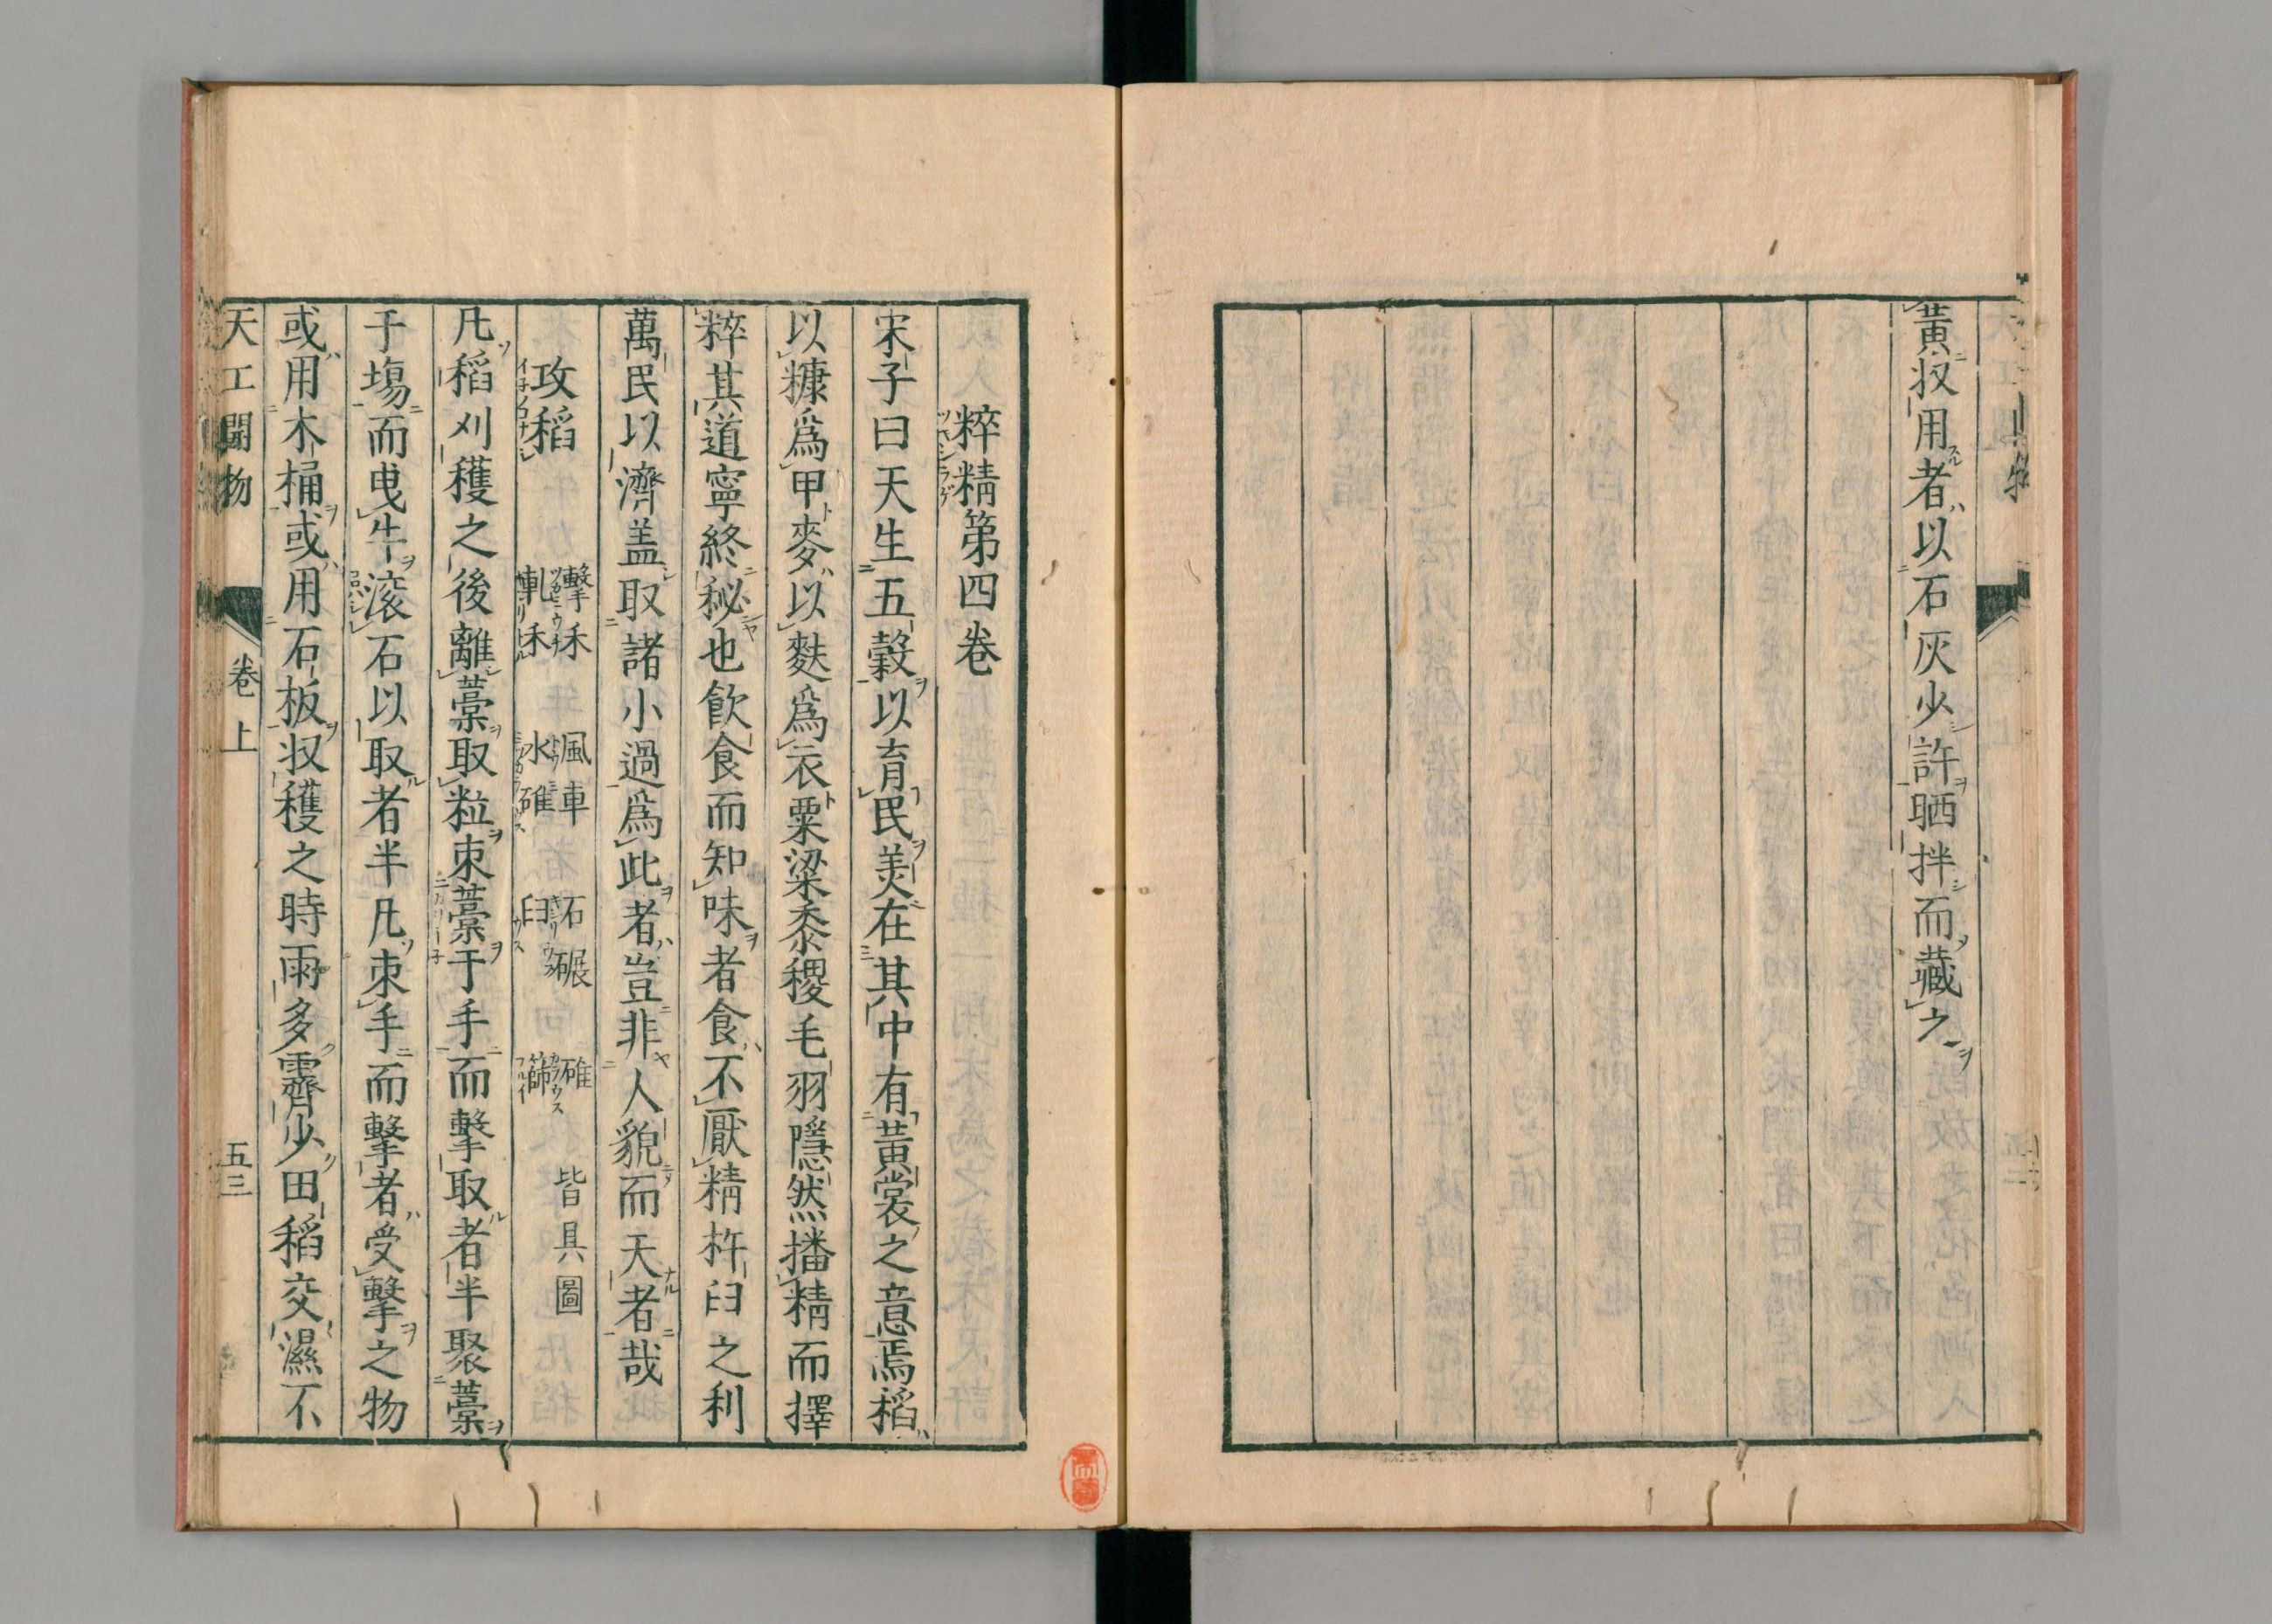 黄収用者以石灰少許晒拌而藏之
粹精第四卷
宋子曰天生五穀以育民美在其中有黃裳之意焉稻
以糠爲甲麥以麩爲衣粟粱黍稷毛羽隱然播精而擇
粹其道寧終秘也飲食而知味者食不厭精杵臼之利
萬民以濟盖取諸小過爲此者豈非人貌而天者哉
攻稻 擊禾 軋禾 風車 水碓 石碾 臼 碓 篩 皆具圖
凡稻刈穫之後離藁取粒束藁于手而擊取者半聚藁
于場而曳牛滚石以取者半凡束手而擊者受擊之物
或用木桶或用石板収穫之時雨多霽少田稻交濕不
天工開物 卷上 五三